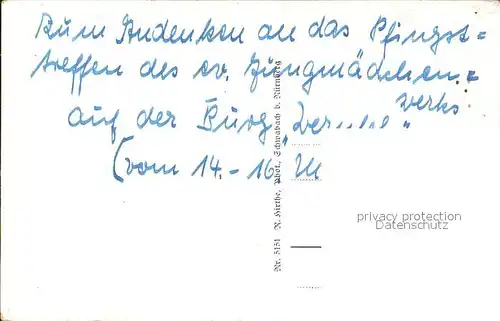 Zum Andenken an das Pfingst=
treffen des ev. Jungmädchen=
werks
auf der Burg „Wer......"
(vom 14.-16. M
Nr. 5151 R. Hirthe, Phot., Schwabach b. Nürnberg
privacy protection
Datenschutz